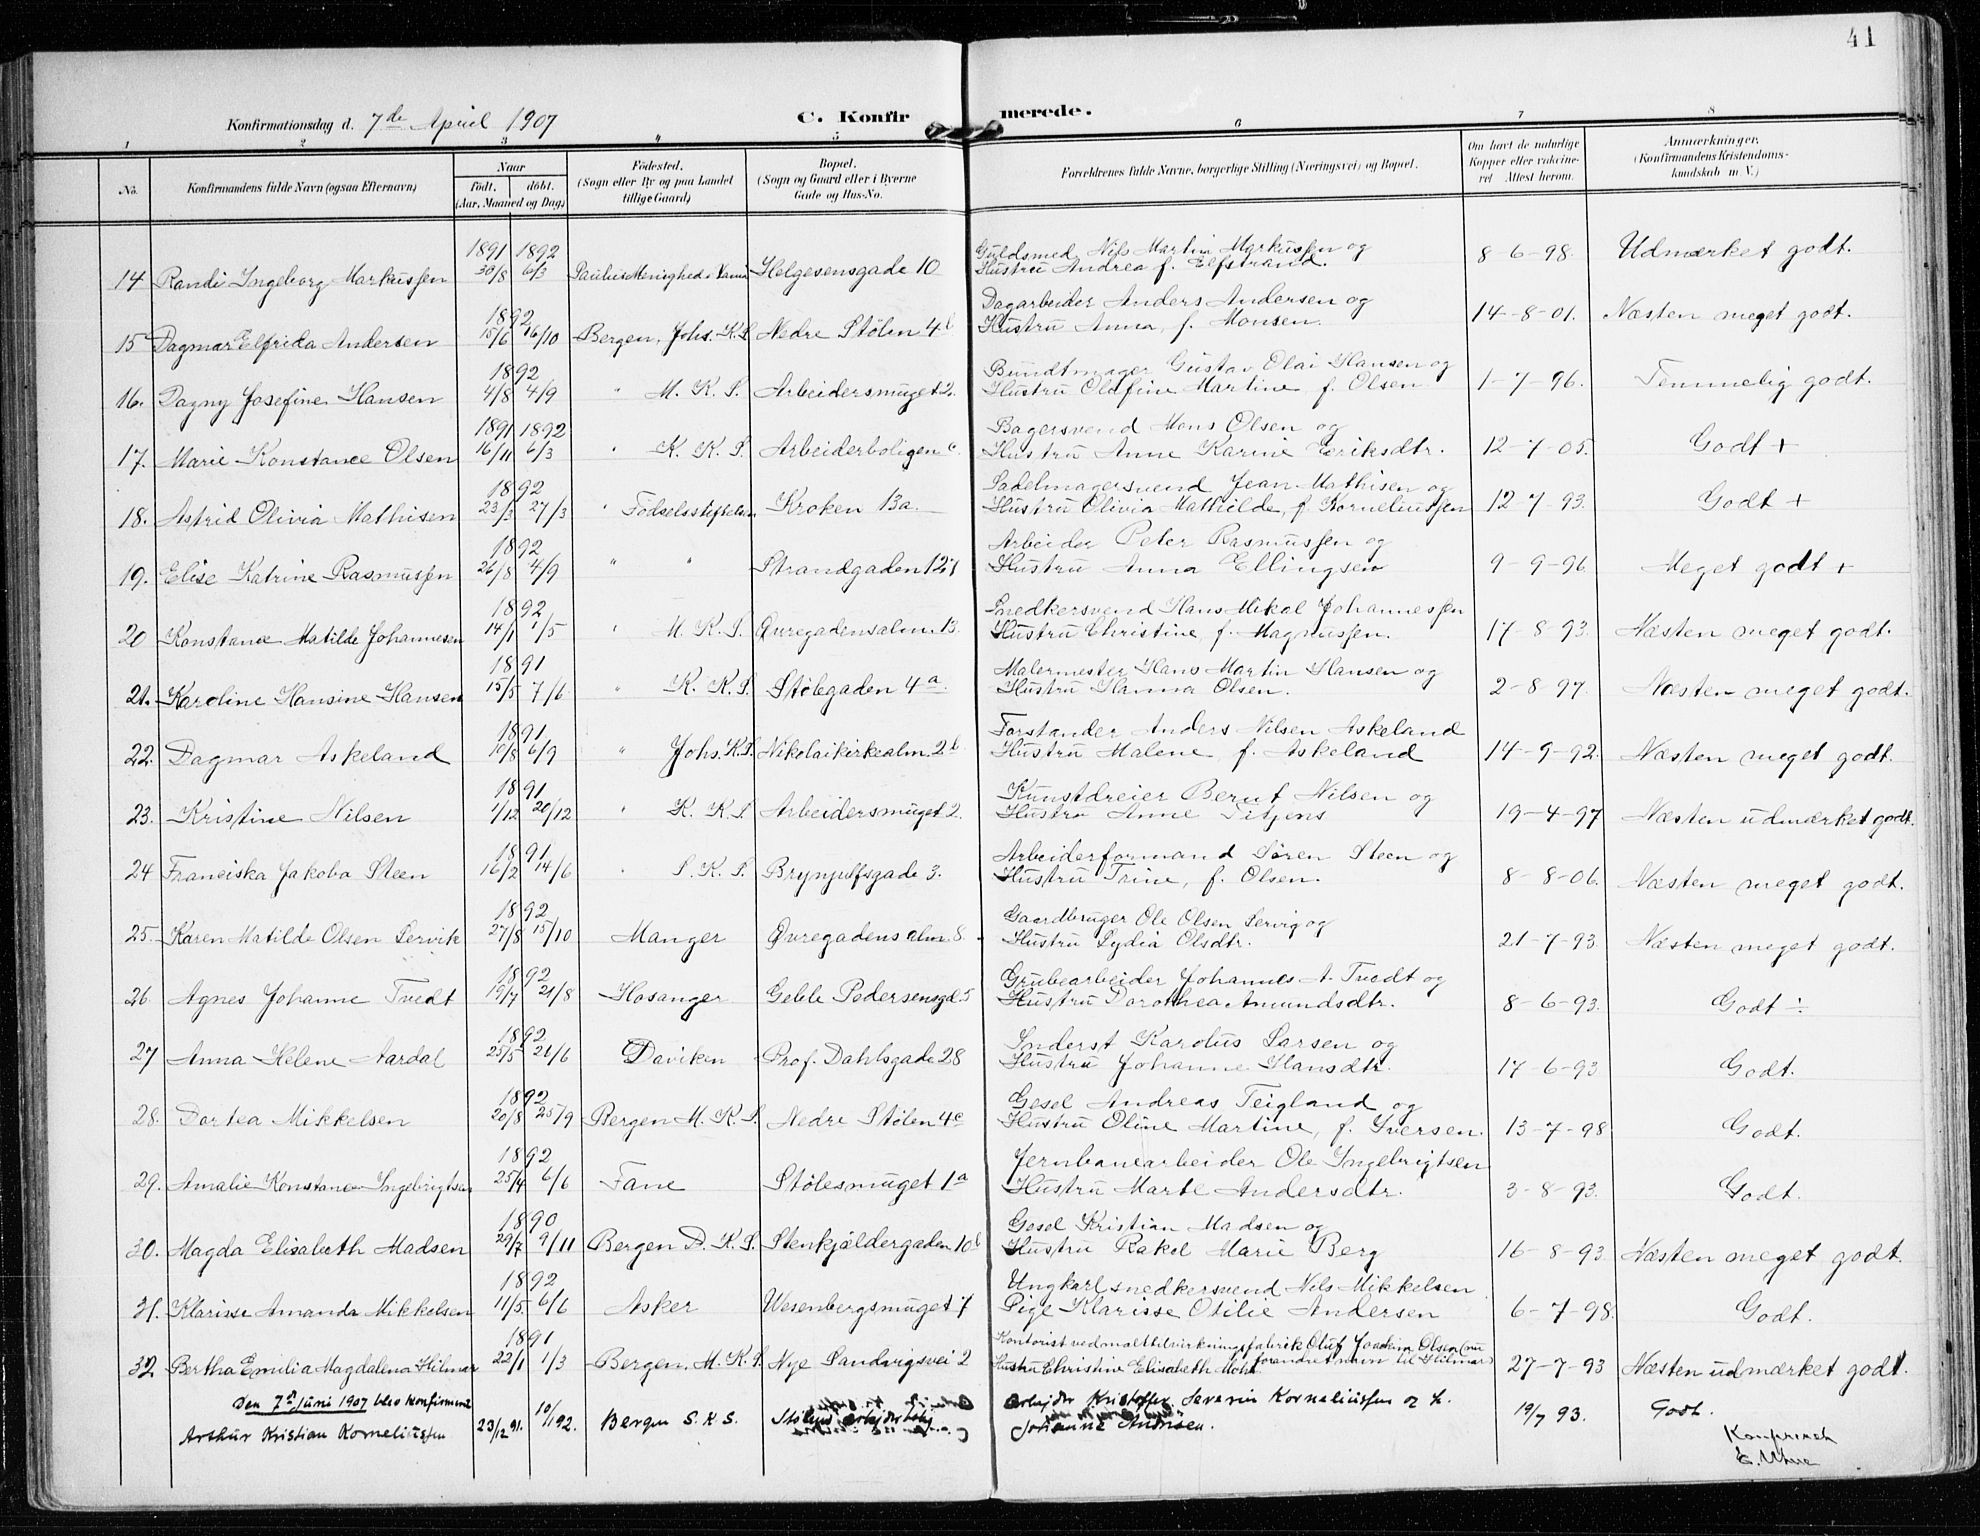 41
Konfirmationsdag d. 7de April 1907 C. Konfirmerede.
1 2 3 4 5 6 7 8
No. Konfirmandens fulde Navn (ogsaa Efternavn) Naar født. døbt. (Aar, Maaned og Dag) Fødested. (Sogn eller By og paa Landet tillige Gaard) Bopæl. (Sogn og Gaard eller i Byerne Gade og Hus-No. Forældrenes fulde Navne, borgerlige Stilling (Næringsvei) og Bopæl. Om havt de naturlige Kopper eller vaksineret Attest herom. Anmærkninger. (Konfirmandens Kristendomskundskab m. V.)
14 Randi Ingeborg Markussen 1891 30/8 1892 6/3 Paulus Menighed Helgesensgade 10 Guldsmed Nils Martin Markussen og Hustru Andrea f. Elfstrand. 8-6-98. Udmærket godt.
15 Dagmar Elfrida Andersen 1892 15/6 16/10 Bergen, Johs. K.S. Nedre Stølen 4b Dagarbeider Anders Andersen og Hustru Anna, f. Monsen. 14-8-01. Næsten meget godt.
16. Dagny Josefine Hansen 1892 4/8 4/9 " M. K. S. Arbeidersmuget 2. Bundtmager Gustav Olai Hansen og Hustru Oldfine Martine f. Olsen. 1-7-96. Temmelig godt.
17. Marie Konstance Olsen 1891 16/11 1892 6/3 " K. K. S. Arbeiderboligen c. Bagersvend Mons Olsen og Hustru Anne Karine Eriksdtr. 12-7-05. Godt +
18. Astrid Olivia Mathisen 1892 23/3 27/3 " Fødselsstiftelsen Kroken 13a. Sadelmagersvend Jean Mathisen og Hustru Olivia Mathilde, f. Korneliussen 12-7-93. Godt +
19. Elise Katrine Rasmussen 1892 26/8 4/9 " " Strandgaden Arbeider Peter Rasmussen og Hustru Anna Ellingsen 9-9-96 Meget godt +
20 Konstance Matilde Johannesen 1892 14/1 1/5 " M. K. S. Øvregadensalm. 13. Snedkersvend Hans Mikal Johannessen Hustru Christine, f. Magnussen. 17-8-93. Næsten meget godt.
21. Karoline Hansine Hansen 1891 15/5 7/6 " K. K. S. Stølegaden 4a. Malermester Hans Martin Hansen og Hustru Hanna Olsen. 2-8-97. Næsten meget godt.
22. Dagmar Askeland 1891 19/8 6/9 " Johs. K.S. Nikolaikirkealm. 2b Forstander Anders Nilsen Askeland Hustru Malene, f. Askeland 14-9-92. Næsten meget godt.
23. Kristine Nilsen 1891 1/12 20/12 " K. K. S. Arbeidersmuget 2. Kunstdreier Bernt Nilsen og Hustru Anne Titjens 19-4-97 Næsten udmærket godt.
24 Franciska Jakoba Steen 1891 16/2 14/6 " S. K. S. Brynjulfsgade 3. Arbeiderformand Søren Steen og Hustru Trine, f. Olsen. 8-8-06. Næsten meget godt.
25. Karen Matilde Olsen Servik 1892 27/8 15/10 Manger Øvregadens alm. 8. Gaardbruger Ole Olsen Servig og Hustru Lydia Olsdtr. 21-7-93. Næsten meget godt.
26. Agnes Johanne Tvedt 1892 19/7 21/8 Hosanger Geble Pedersensgd. 5 Grubearbeider Johannes A. Tvedt og Hustru Dorothea Amundsdtr. 8-6-93. Godt ÷
27 Anna Helene Aardal 1892 25/5 26/6 Daviken Prof. Dahlsgade 28 Inderst Karolus Larsen og Hustru Johanne Hansdtr. 17-6-93 Godt.
28. Dortea Mikkelsen 1892 20/8 25/9 Bergen M. K. S. Nedre Stølen 4c Gesel Andreas Teigland og Hustru Oline Martine, f. Iversen. 13-7-98 Godt.
29. Amalie Konstance Ingebrigtsen 1892 25/4 6/6 Fane Stølesmuget 1a Jernbanearbeider Ole Ingebrigtsen Hustru Marte Andersdtr. 3-8-93. Godt.
30. Magda Elisabeth Madsen 1890 29/7 9/11 Bergen D. K. S. Stenkjældergaden 10b Gesel Kristian Madsen og Hustru Rakel Marie Berg 16-8-93 Næsten meget godt.
31. Klarisse Amanda Mikkelsen 1892 11/5 6/6 Asker Wesenbergsmuget 7 Ungkarl snedkersvend Nils Mikkelsen Pige Klarisse Otilie Andersen 6-7-98. Godt.
32. Bertha Emilia Magdalena Hilmar 1891 22/1 1/3 Bergen. M. K. S. Nye Sandvigsvei 2 Kontorist ved malttilvirkningsfabrik Oluf Joakim Olsen (nu forandret navn til Hilmar) Hustru Christine Elisabeth Mohr 27-7-93 Næsten udmærket godt.
Den 7de Juni 1907 blev konfirmeret
Arthur Kristian Korneliussen 23/12 91. 10/1 92. Bergen S. K. S. Stølens arbejderbolig Arbejder Kristoffer Severin Korneliussen og h. Johanne 19/7 93. Godt.